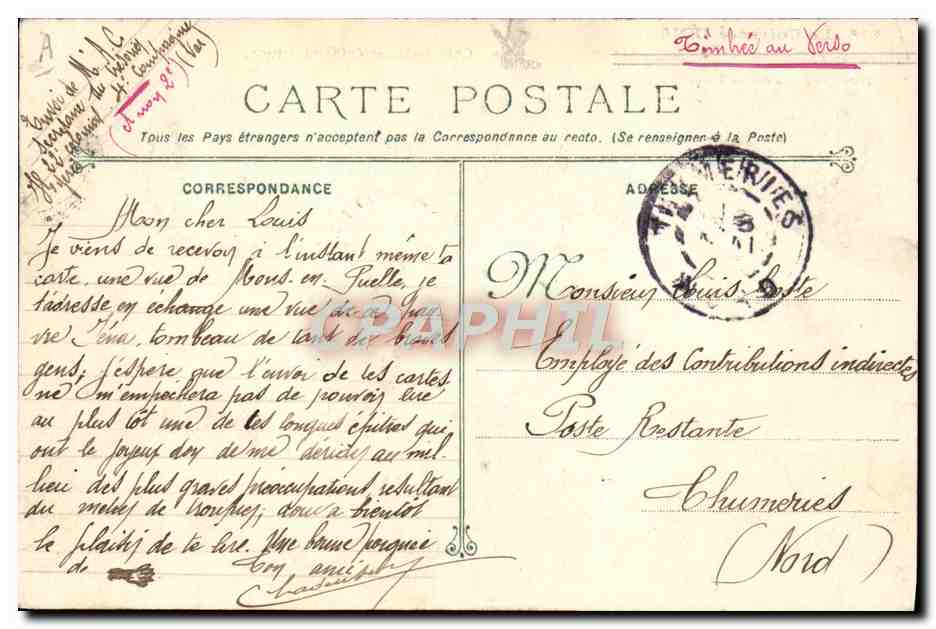 A
Envoi de M. A. C.
Secrétaire du Trésorier
22e Colonial 4e Compagnie
Hyères (Var)
(et non 2e)
Timbrée au Verso
CARTE POSTALE
Tous les Pays étrangers n'acceptent pas la Correspondance au recto. (Se renseigner à la Poste)
CORRESPONDANCE
Mon cher Louis
Je viens de recevoir à l'instant même ta
carte, une vue de Mons-en-Puelle, je
t'adresse en échange une vue de ce pau-
vre Iéna, tombeau de tant de braves
gens; j'espère que l'envoi de tes cartes
ne m'empêchera pas de pouvoir lire
au plus tôt une de tes longues épîtres qui
ont le joyeux don de me dérider au mi-
lieu des plus graves préoccupations résultant
du métier de troupier; donc à bientôt
le plaisir de te lire. Une bonne poignée
de
Ton ami
ADRESSE
THUMERIES
NORD
Monsieur Louis
Employé des Contributions indirectes
Poste Restante
Thumeries
(Nord)
CPAPHIL